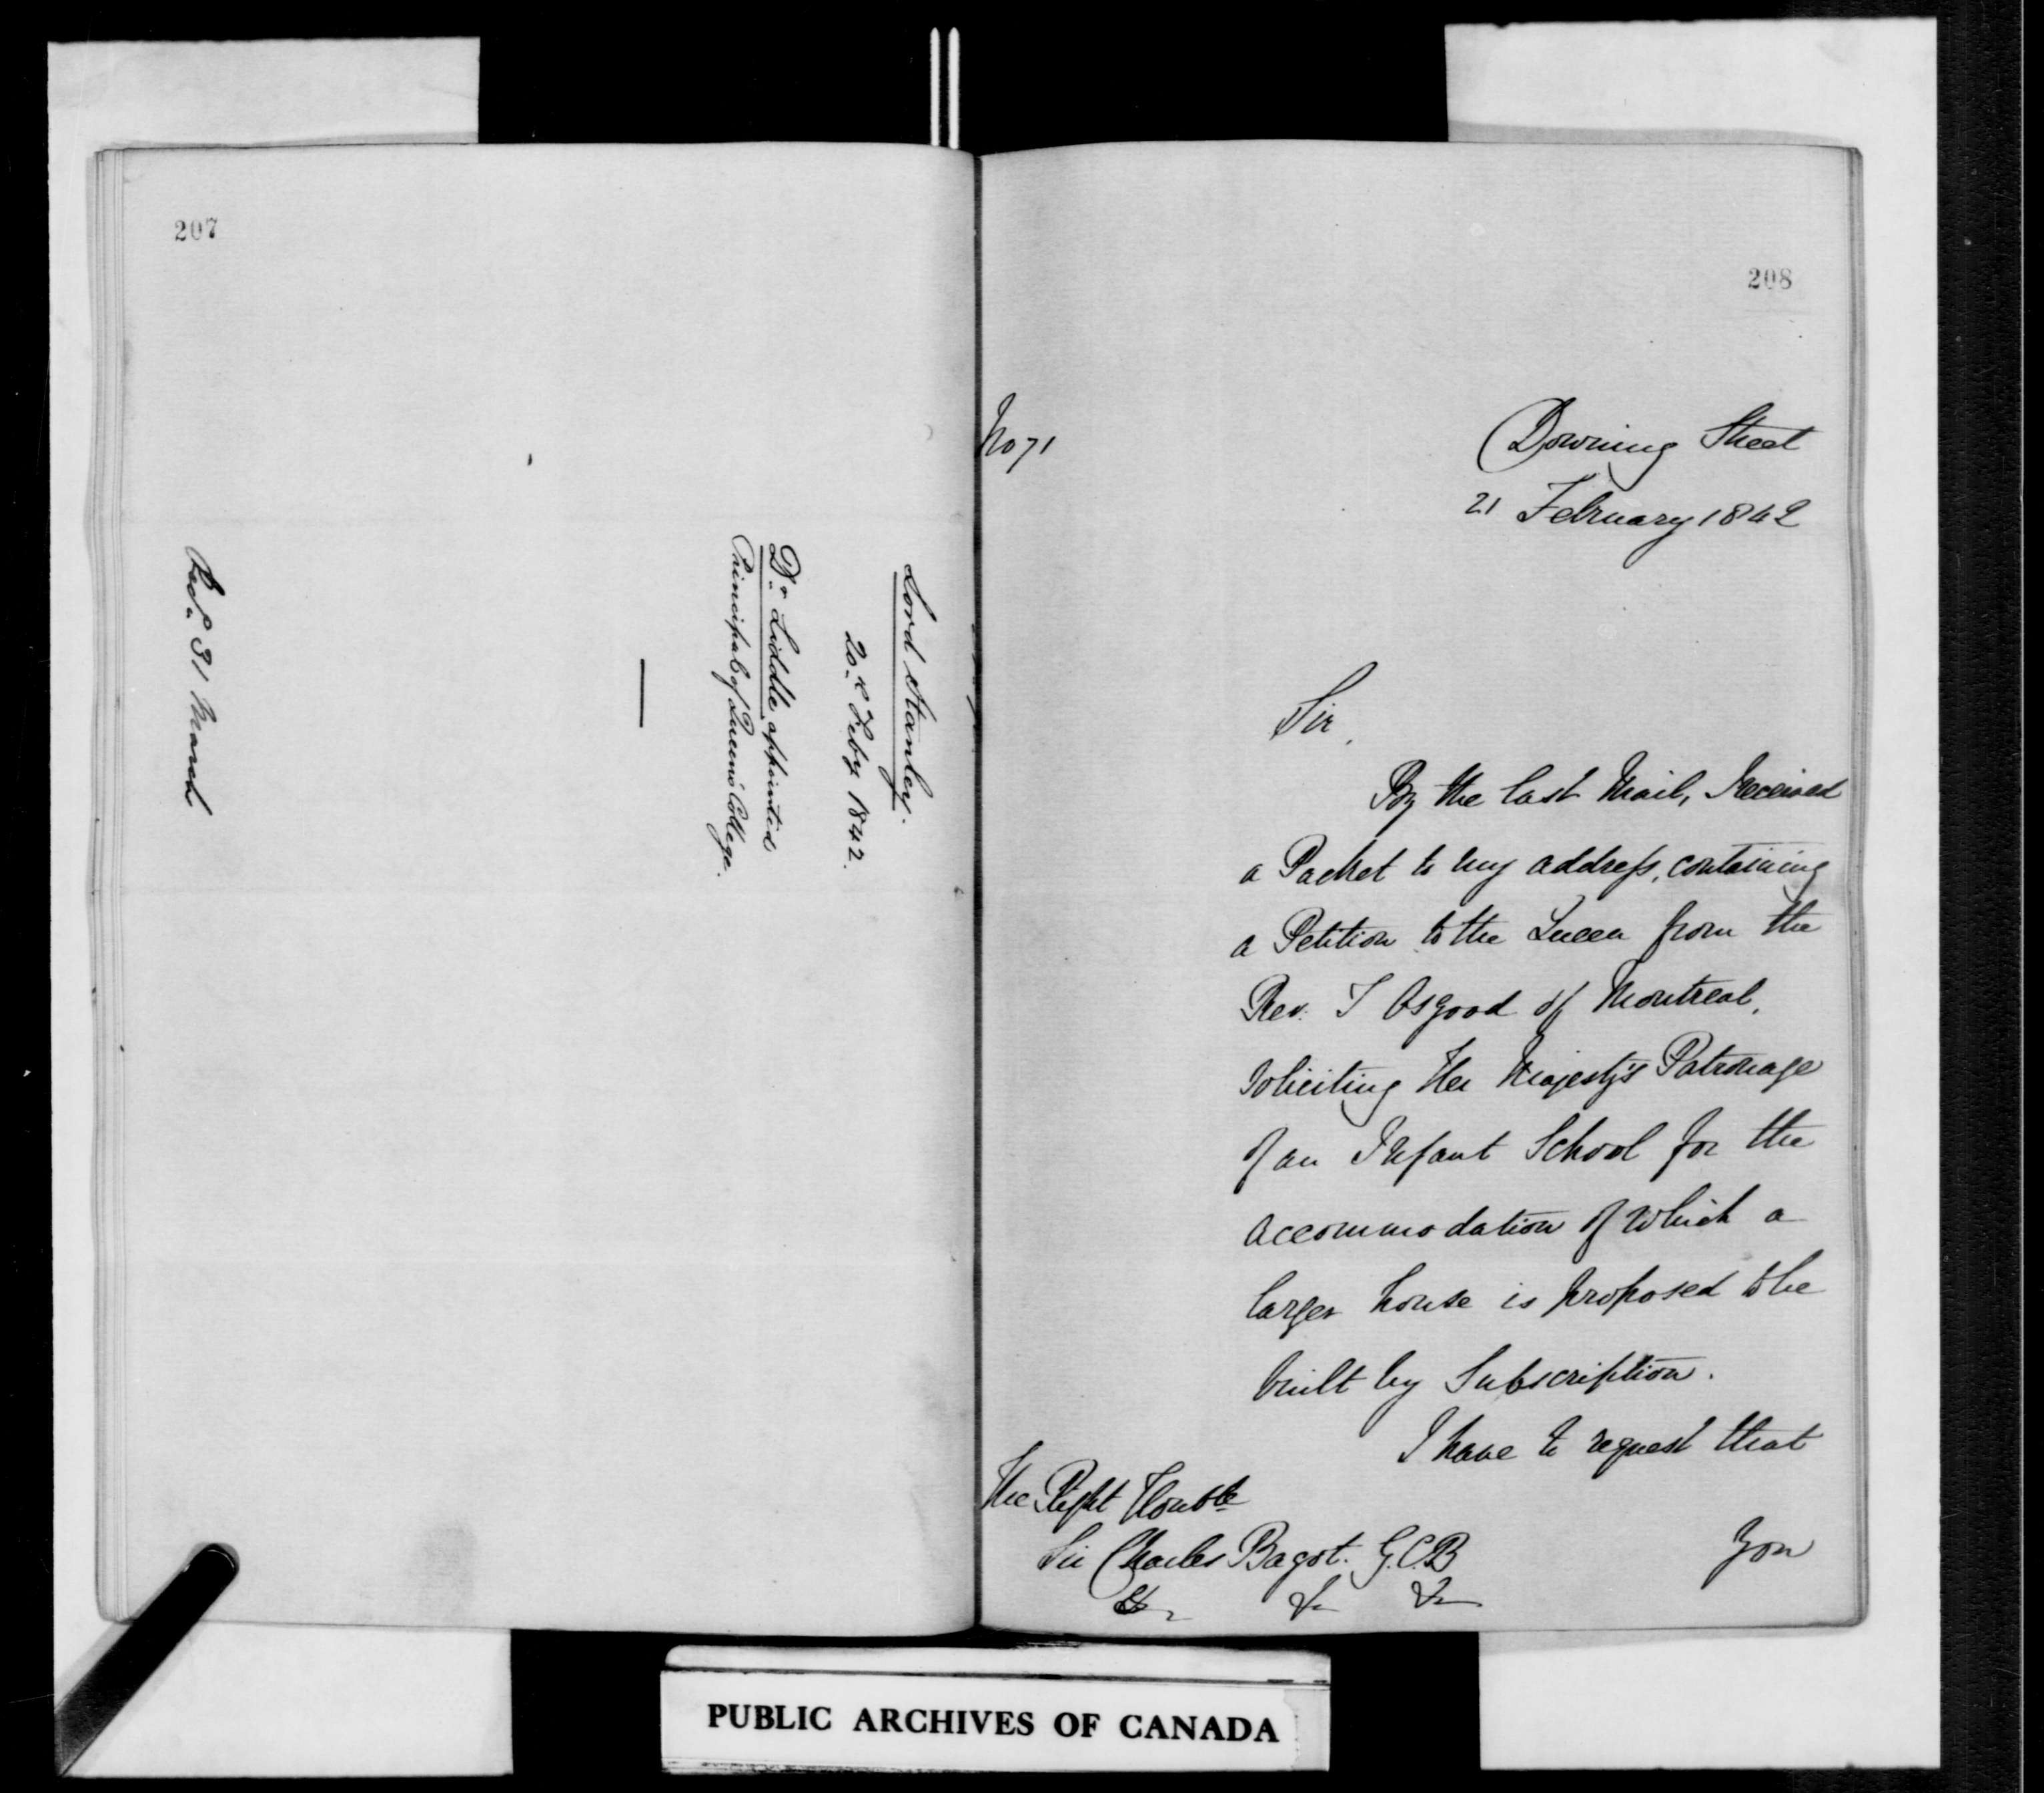 207
Lord Stanley.
20th Feby 1842.
Dr. Liddle appointed
Principal of Queen's College.
Recd. 31 March
208
No 71
Downing Street
21 February 1842
Sir,
By the last Mail, I received
a Packet to my address, containing
a Petition to the Queen from the
Rev. T Osgood of Montreal,
soliciting Her Majesty's Patronage
of an Infant School for the
accommodation of which a
larger house is proposed to be
built by Subscription.
I have to request that
The Right Honble
Sir Charles Bagot. G.C.B
&c &c &c
You
PUBLIC ARCHIVES OF CANADA